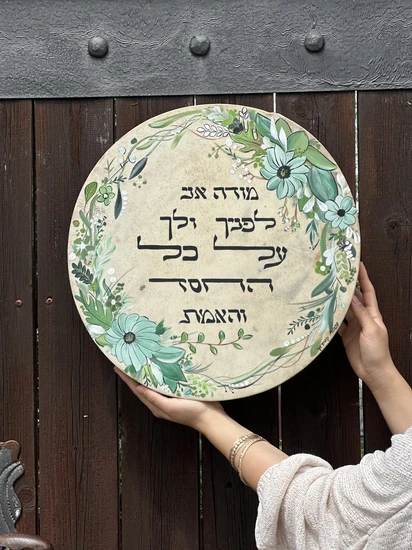 מודה אני
לפניך ולך
על כל
החסד
והאמת